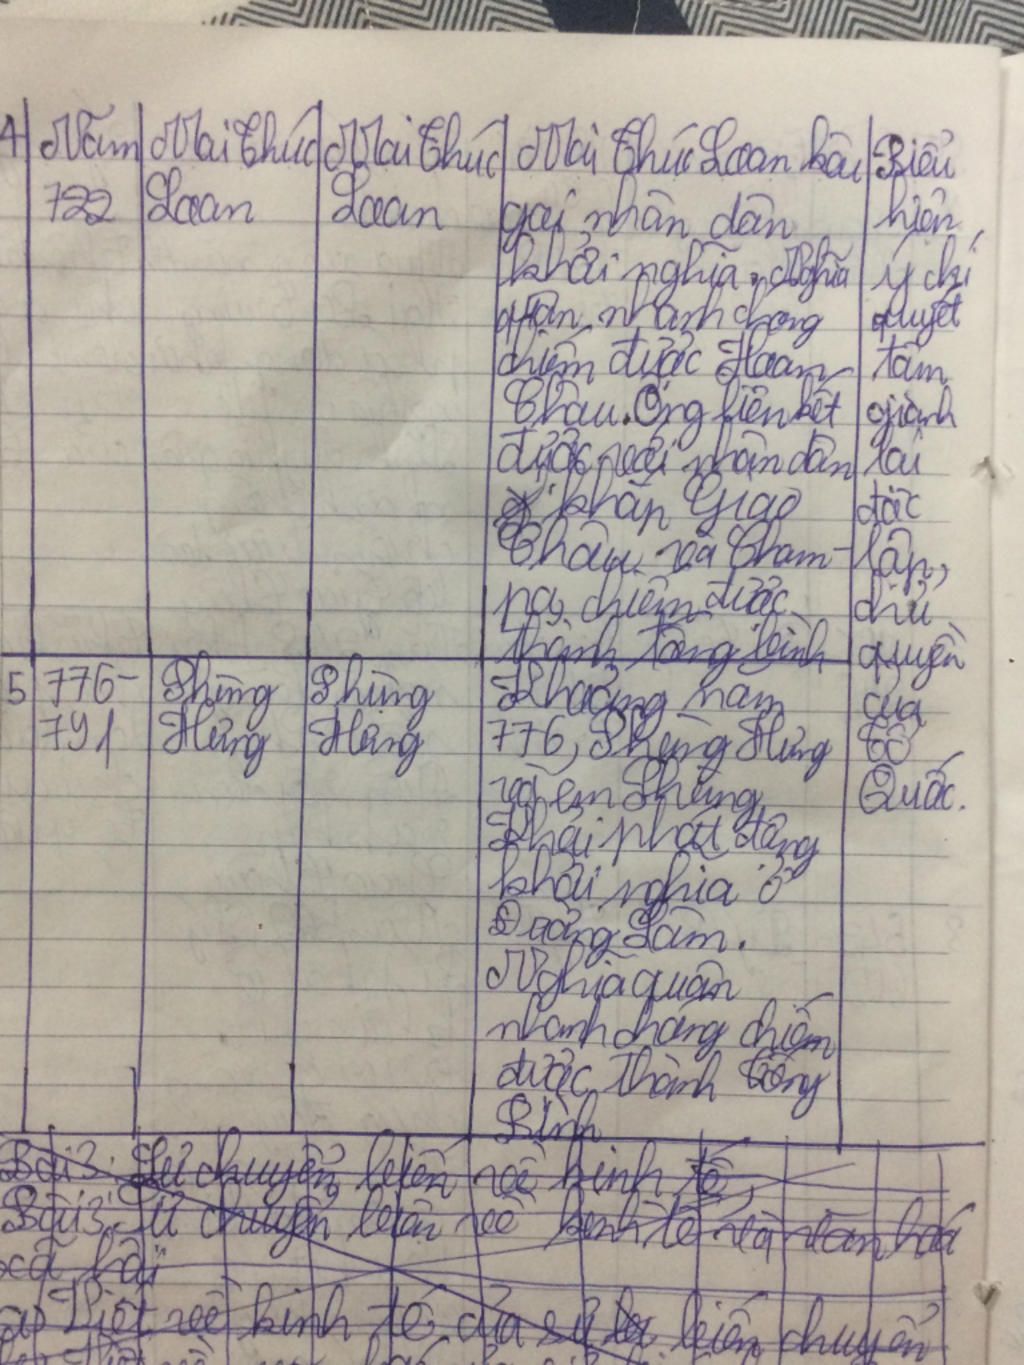 4
Năm
722
Mai Thúc
Loan
Mai Thúc
Loan
Mai Thúc Loan kêu
gọi nhân dân
khởi nghĩa. Nghĩa
quân nhanh chóng
chiếm được Hoan
Châu. Ông liên kết
được với nhân dân
khắp Giao
Châu và Cham-
pa, chiếm được
thành Tống Bình
Biểu
hiện
ý chí
quyết
tâm
giành
lại
độc
lập,
chủ
quyền
của
Tổ
Quốc.
5
776-
791
Phùng
Hưng
Phùng
Hưng
Khoảng năm
776, Phùng Hưng
và em Phùng
Hải phát động
khởi nghĩa ở
Đường Lâm.
Nghĩa quân
nhanh chóng chiếm
được thành Tống
Bình
Bài 3: Sự chuyển biến về kinh tế,
Bài 3: Sự chuyển biến về kinh tế và văn hoá
xã hội
a) Viết về kinh tế của sự biến chuyển